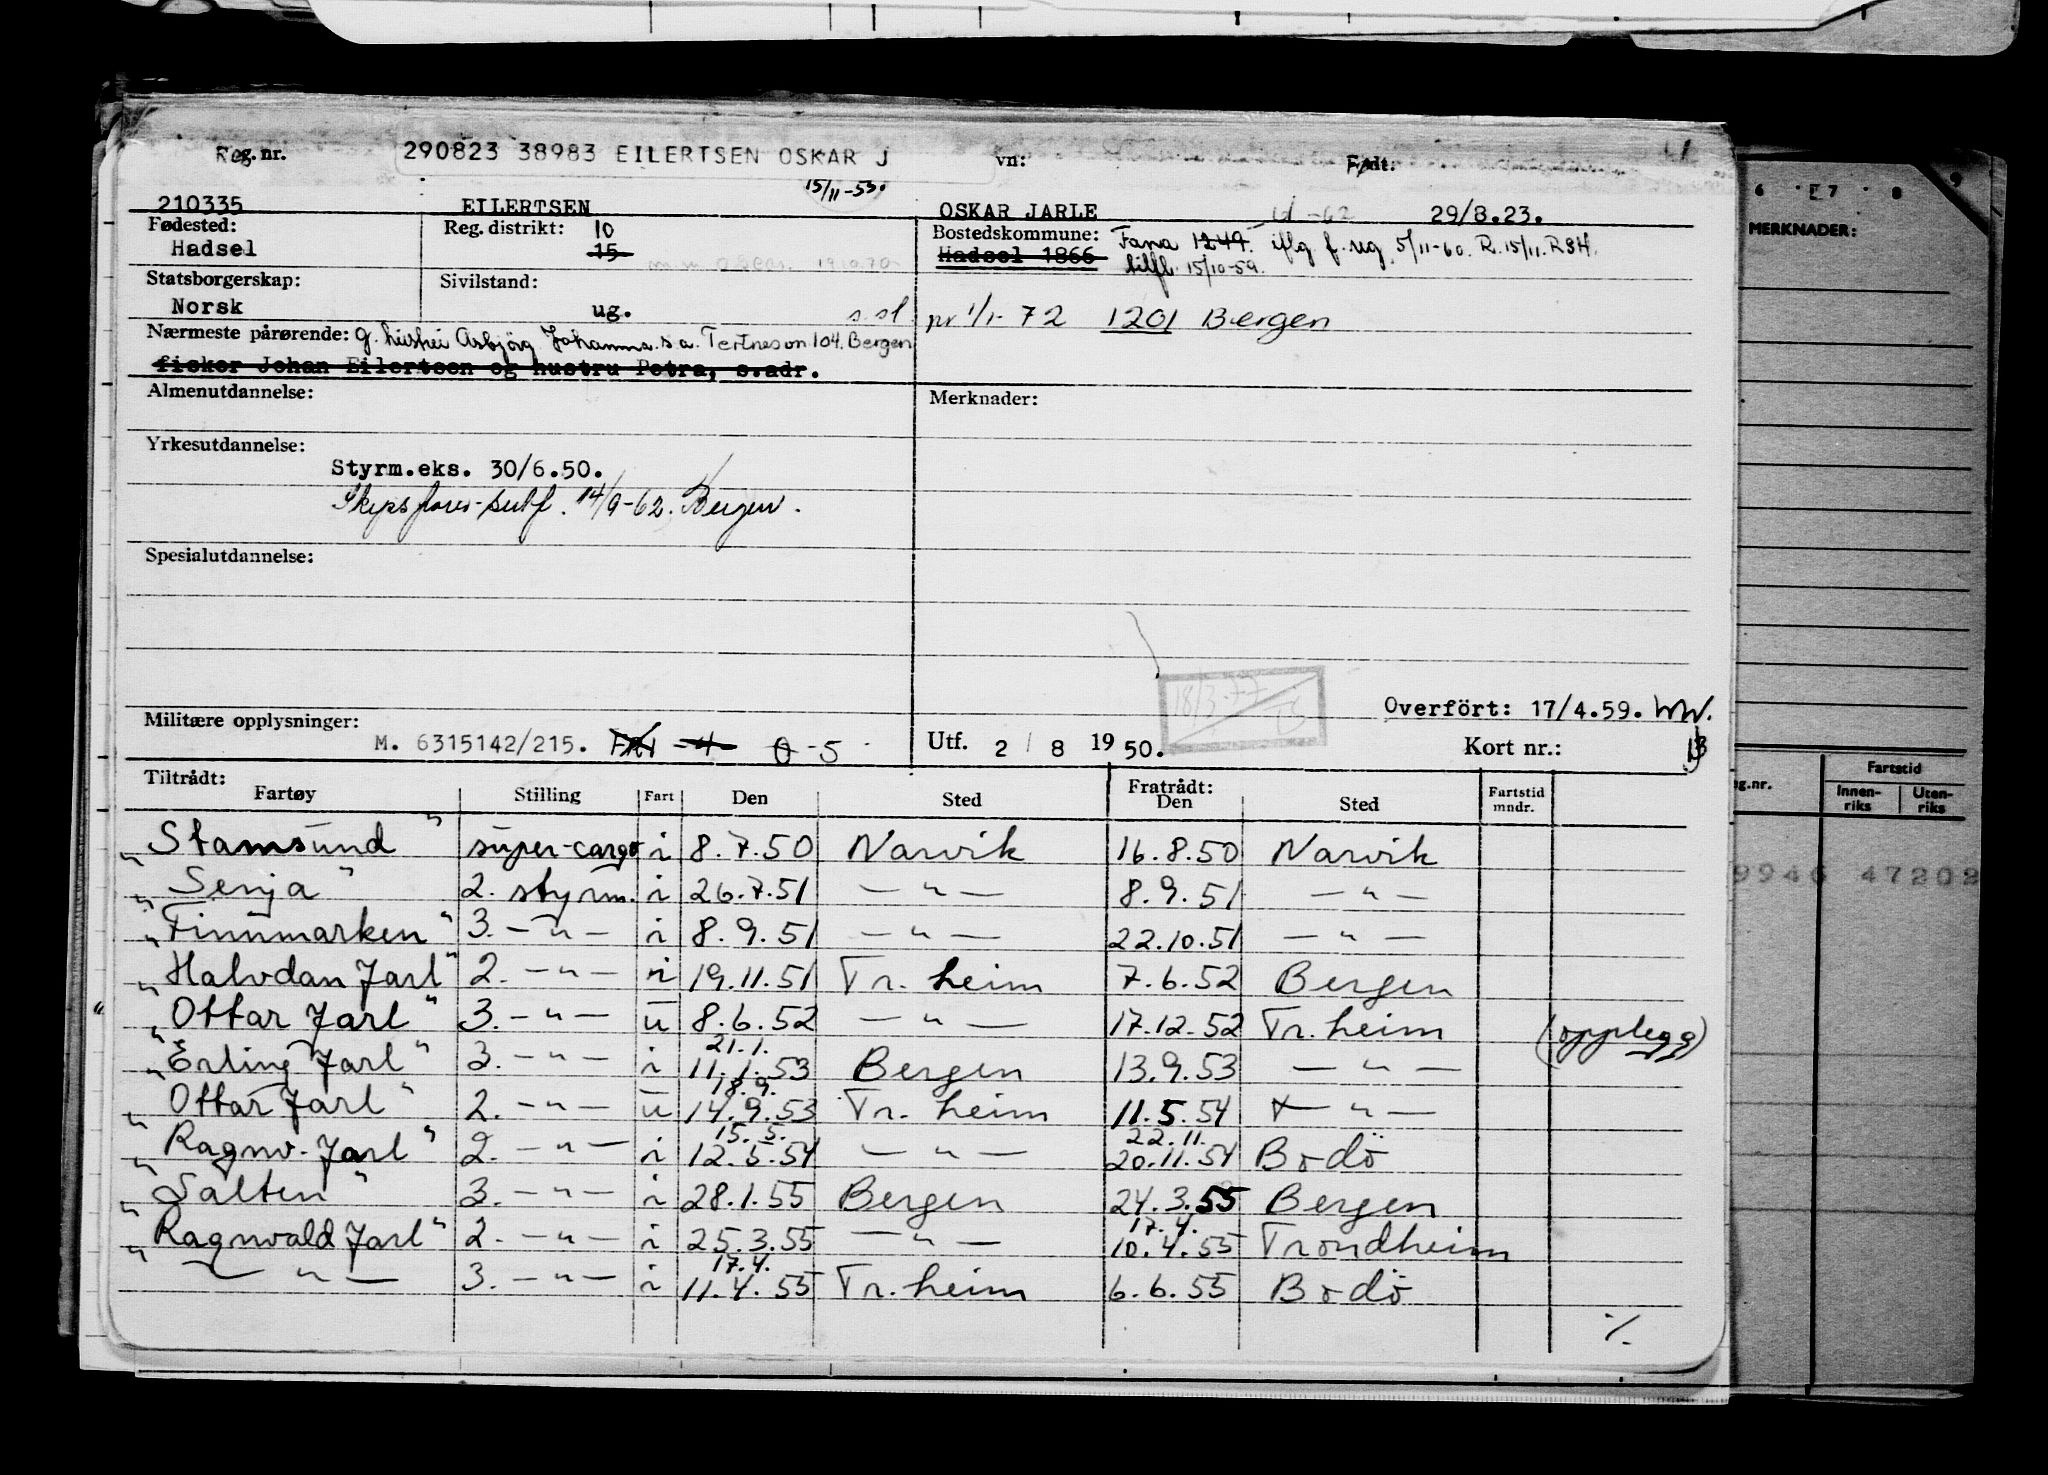 Reg. nr. 290823 38983 EILERTSEN OSKAR J vn: Født:
15/11-53.
210335 EILERTSEN OSKAR JARLE 29/8.23.
Fødested: Reg. distrikt: 10 Bostedskommune: Fana 1249. iflg f. ug 5/11-60. R. 15/11. RSH.
Hadsel 15 Hadsel 1866 tilfl. 15/10-59.
Statsborgerskap: Sivilstand:
Norsk ug. pr 1/1-72 1201 Bergen
Nærmeste pårørende: g. hustru Asbjörg Johanna s.a. Tertnesvn 104. Bergen
fisker Johan Eilertsen og hustru Petra, s.adr.
Almenutdannelse: Merknader:
Yrkesutdannelse:
Styrm.eks. 30/6.50.
Skipsfører-sertf. 14/9-62. Bergen.
Spesialutdannelse:
18/3-77
Overfört: 17/4.59. WW.
Militære opplysninger: M. 6315142/215. -4 0-5 Utf. 2/8 1950. Kort nr.:
Tiltrådt: Fratrådt:
Fartøy Stilling Fart Den Sted Den Sted Fartstid mndr.
"Stamsund" super-cargo i 8.7.50 Narvik 16.8.50 Narvik
"Senja" 2. styrm. i 26.7.51 — " — 8.9.51 — " —
"Finnmarken" 3. — " — i 8.9.51 — " — 22.10.51 — " —
"Halvdan Jarl" 2. — " — i 19.11.51 Tr. heim 7.6.52 Bergen
"Ottar Jarl" 3. — " — u 8.6.52 — " — 17.12.52 Tr. heim (opplegg)
21.1.
"Erling Jarl" 3. — " — i 11.1.53 Bergen 13.9.53 — " —
18.9.
"Ottar Jarl" 2. — " — u 14.9.53 Tr. heim 11.5.54 — " —
15.5. 22.11.
"Ragnv. Jarl" 2. — " — i 12.5.54 — " — 20.11.54 Bodö
"Salten" 3. — " — i 28.1.55 Bergen 24.3.55 Bergen
17.4.
"Ragnvald Jarl" 2. — " — i 25.3.55 — " — 10.4.55 Trondheim
17.4.
— " — 3. — " — i 11.4.55 Tr. heim 6.6.55 Bodö
%
6 7 8 9
MERKNADER:
g.nr. Fartstid
Innenriks Utenriks
9946 47202